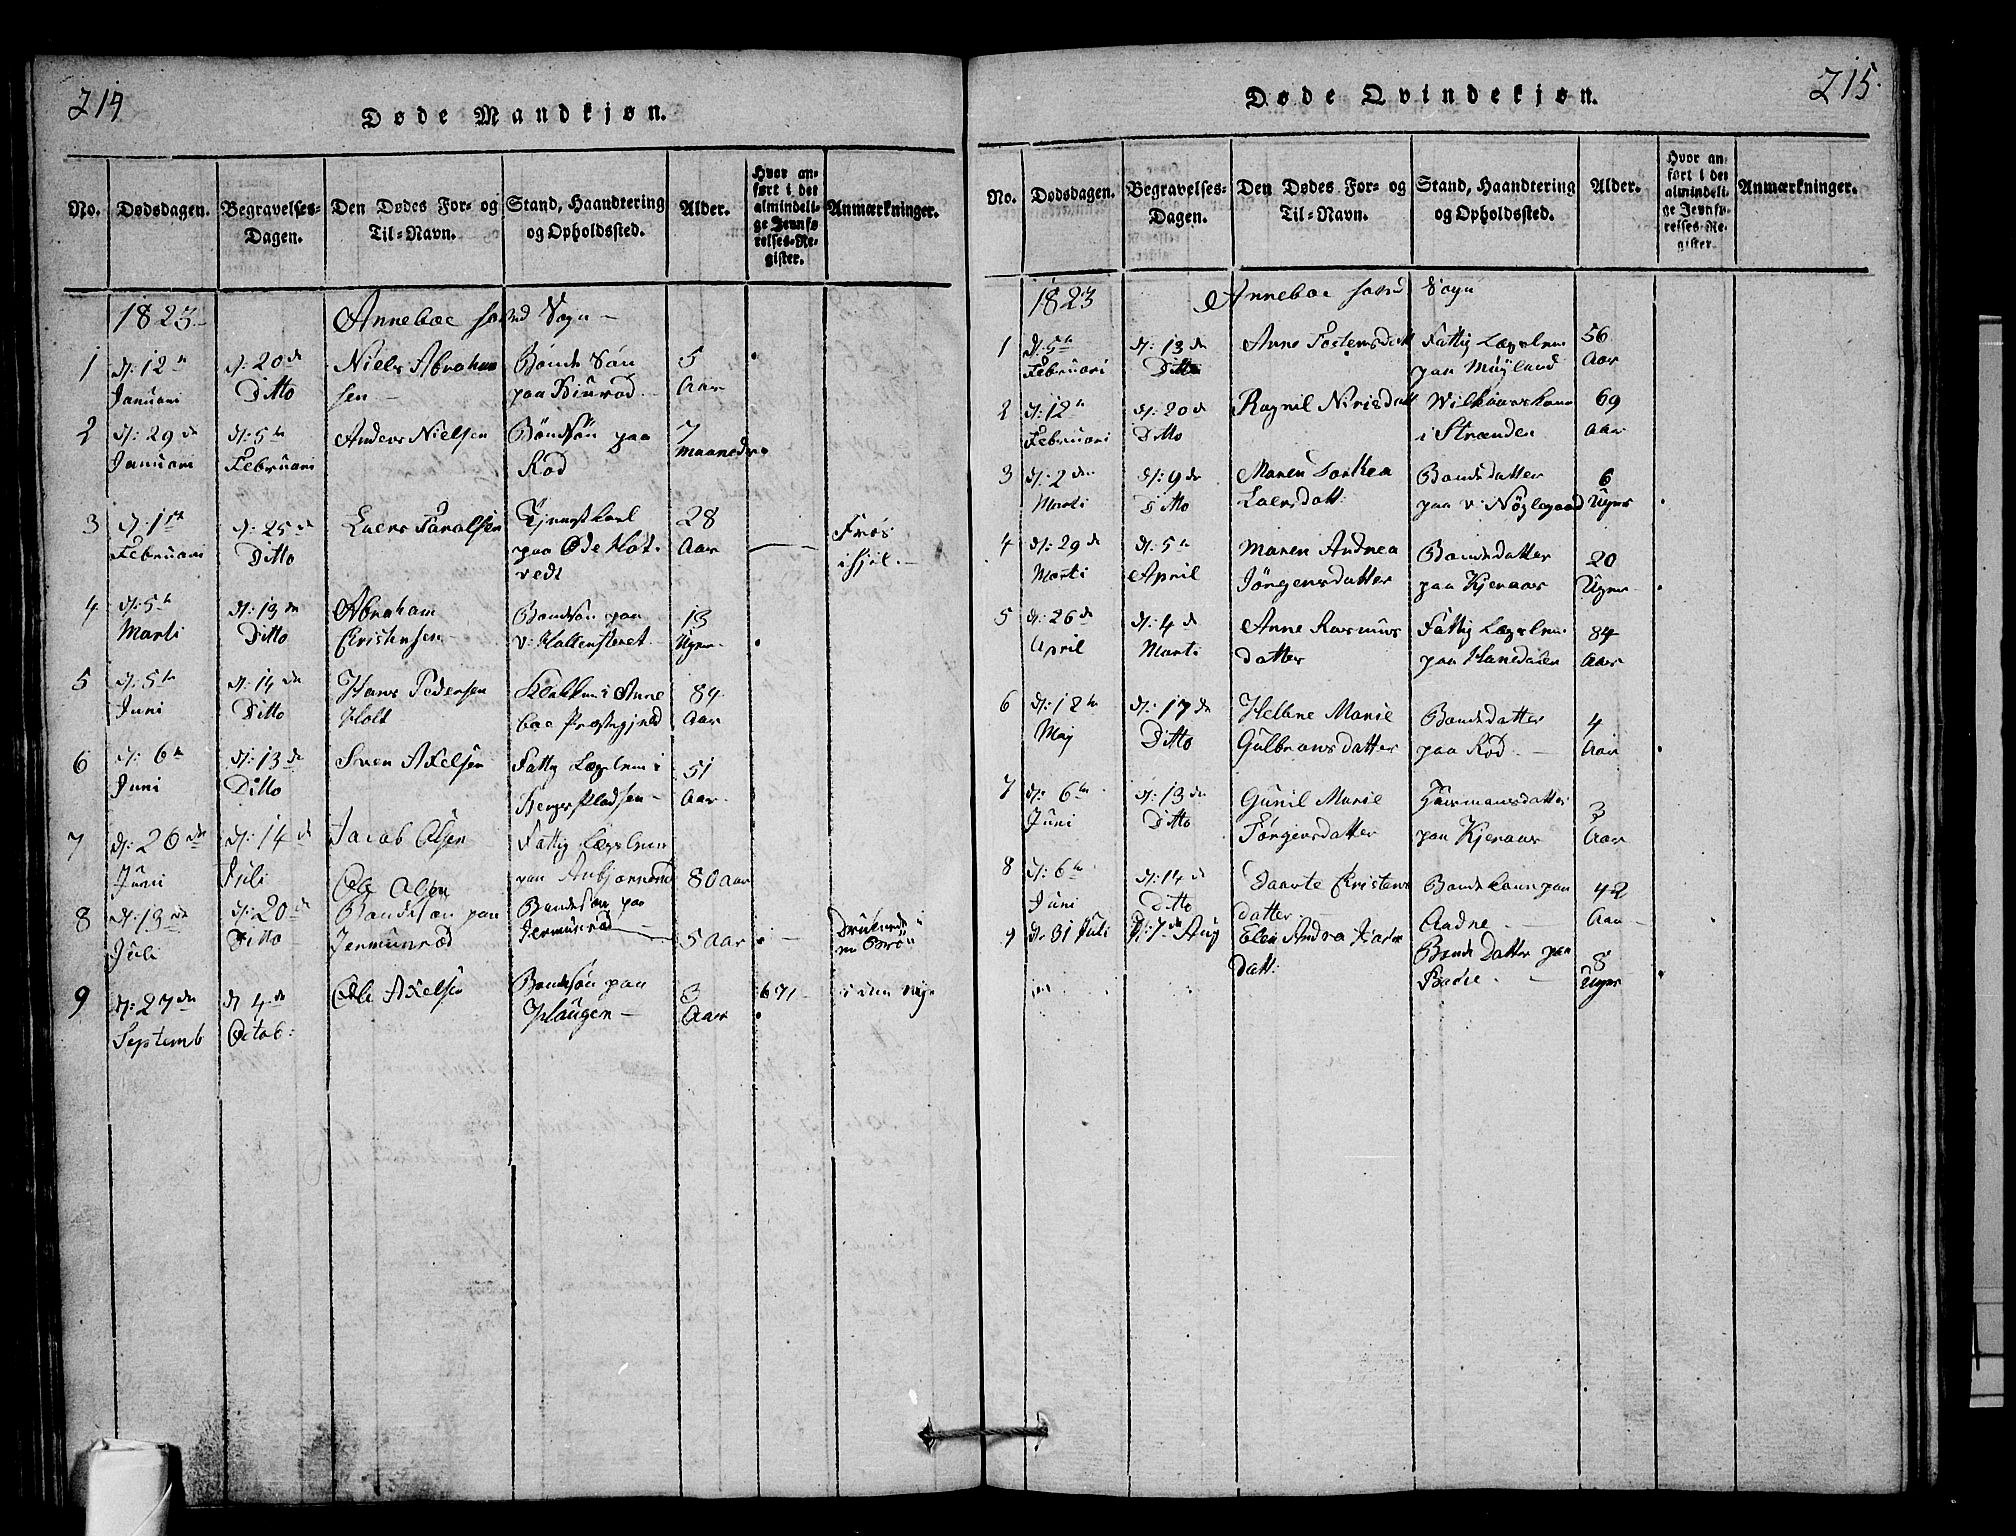 214
Døde Mandkjøn.
No. Dødsdagen. Begravelses-Dagen. Den Dødes For- og Til-Navn. Stand, Haandtering og Opholdssted. Alder. Hvor anført i det almindelige Jevnførelses-Register. Anmærkninger.
1823 Anneboe Sogn
1 d: 12te d: 20de Niels Abraham Bonde Søn 5
Januari Ditto sen paa Aar
2 d: 29de d: 5te Anders Nielsen Bondesøn paa 7
Januari Februari Rød Maaneder
3 d: 1ste d: 25de Laers Tjenestkarl 28 Frøs
Februari Ditto paa Øde Holt Aar ihjel.
vedt
4 d: 5te d: 13de Abraham Bondesøn paa 13
Marti Ditto Christensen v: Uger
5 d: 5te d: 14de Hans Pedersen Klokker i Anne 89
Juni Ditto Holt boe Præstegjeld Aar
6 d: 6te d: 13de Sven Axelsen Fattig Lægslem i 51
Juni Ditto Aar
7 d: 26de d: 14de Jacob Olsen Fattig Lægslem
Juni Juli paa 80 Aar
Ole Olsen
8 d: 13de d: 20de Bondesøn paa Bondesøn paa
Juli Ditto Jermunrød Jermunrød 5 Aar Druknede i
en Brøn
9 d: 27de d: 4de Ole Axelsen Bondesøn paa 3 671
Septemb Octob: Haugen Aar
215.
Døde Qvindekjøn.
No. Dødsdagen. Begravelses-Dagen. Den Dødes For- og Til-Navn. Stand, Haandtering og Opholdssted. Alder. Hvor anført i det almindelige Jevnførelses-Register. Anmærkninger.
1823 Anneboe Sogn
1 d: 5te d: 13de Anne Fattig Lægslem 56
Februari Ditto paa Møyland Aar
2 d: 12te d: 20de Ragnil 69
Februari Ditto i Stranden Aar
3 d: 2den d: 9de Maren Bondedatter 6
Marti Ditto Laersdatt: paa v: Nøglegaard Uger
4 d: 29de d: 5te Maren Andrea Bondedatter 20
Marti April Jörgensdatter paa Kjeraas Uger
5 d: 26de d: 4de Anne Rasmus Fattig Lægslem 84
April Marti datter paa Hanedalen Aar
6 d: 12te d: 17de Hellene Marie Bondedatter 4
Maj Ditto Gulbransdatter paa Rød Aar
7 d: 6te d: 13de Gunil Marie Huusmansdatter 3
Juni Ditto Jörgensdatter paa Kjeraas Aar
8 d: 6te d: 14de Daarte Kristens Bondekone paa 42
Juni Ditto datter Aadne Aar
9 d: 31 Juli d: 7de Aug Elen Andrea Bonde Datter paa 8
Datt: Uger